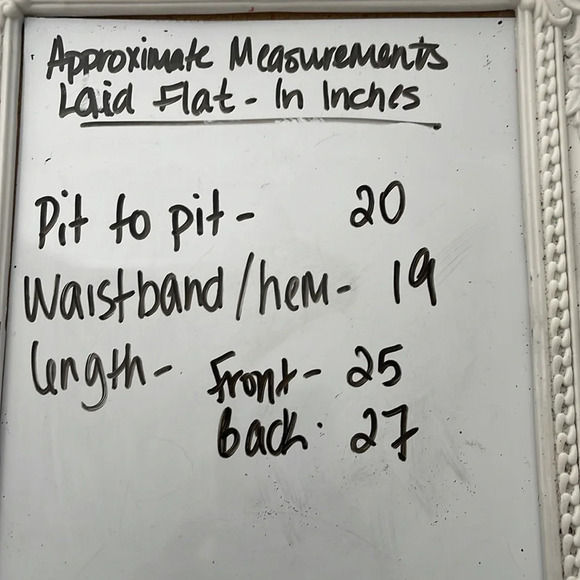 Approximate Measurements
Laid Flat - In Inches
Pit to pit - 20
Waistband/hem - 19
length - Front - 25
Back: 27